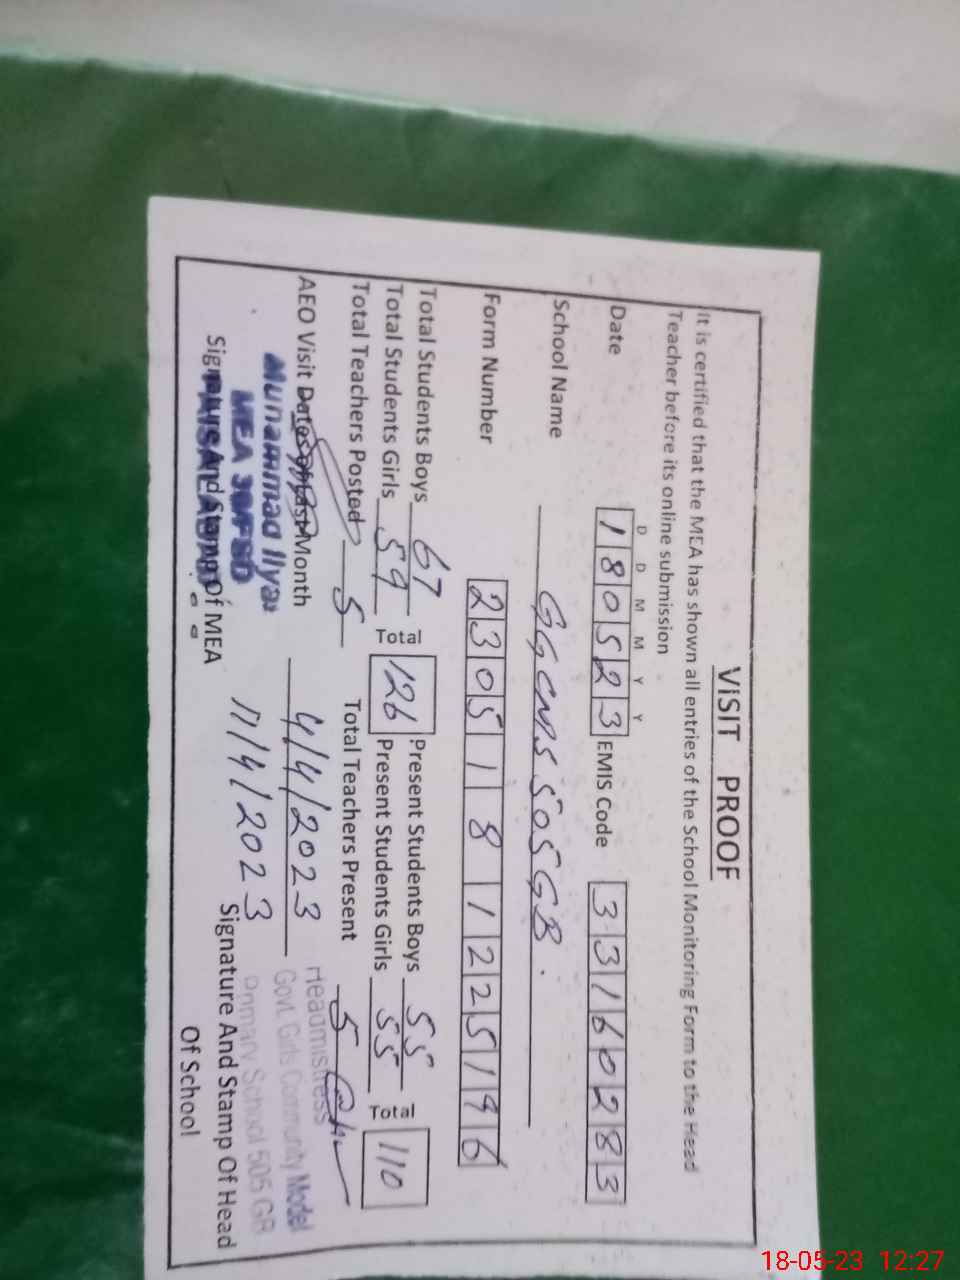 VISIT PROOF
It is certified that the MEA has shown all entries of the School Monitoring Form to the Head
Teacher before its online submission
D D M M Y Y
Date 180523 EMIS Code 33160283
School Name GGCMS 505GB.
Form Number 2305181225196
Total Students Boys 67 Present Students Boys 55
Total Students Girls 59 Total 126 Present Students Girls 55 Total 110
Total Teachers Posted 5 Total Teachers Present 5
AEO Visit Dates Of Last Month 4/4/2023
11/4/2023
Muhammad Ilyas
MEA FSD
FAISALABAD
Signature And Stamp Of MEA
Headmistress
Govt. Girls Community Model
Primary School 505 GB
Signature And Stamp Of Head
Of School
18-05-23 12:27